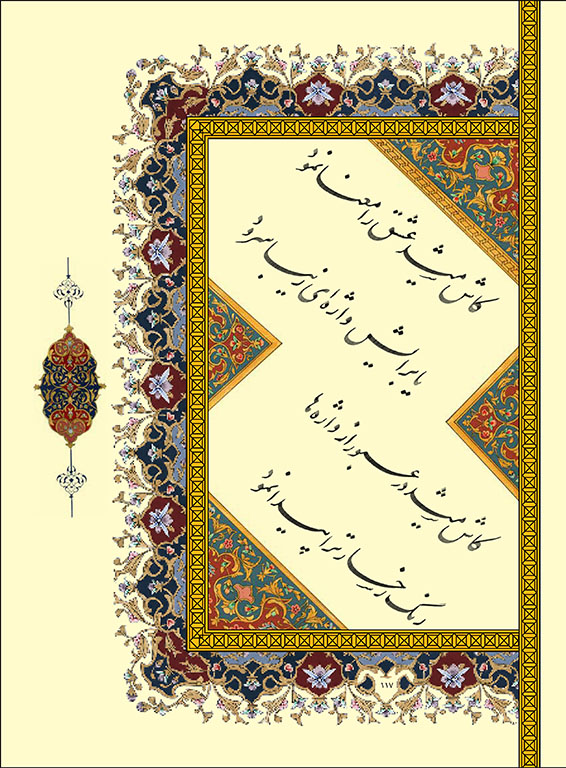 کاش میشد عشق را معنا نمود
یا برایش واژه ای زیبا سرود
کاش میشد در عبور از واژه ها
رنگ رخسار ترا پیدا نمود
۱۱۷